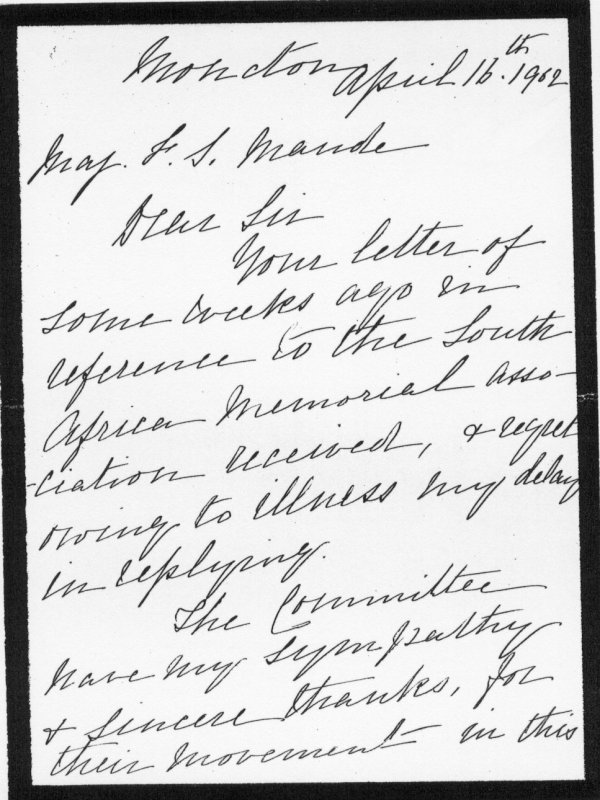 Moncton
April 16th. 1902
Maj. F. S. Maude
Dear Sir
Your letter of
some weeks ago in
reference to the South
Africa Memorial asso-
-ciation received, & regret
owing to illness my delay
in replying.
The Committee
have my sympathy
& sincere thanks, for
their movement in this